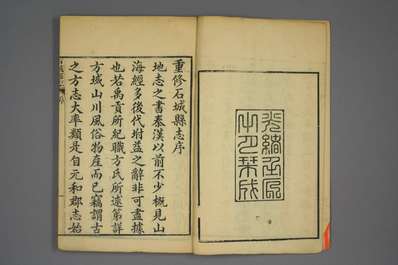 光緒壬辰
月栞成
重修石城縣志序
地志之書秦漢以前不少概見山
海經多後代坿益之辭非可盡據
也若禹貢所紀職方氏所述第詳
方域山川風俗物產而已竊謂古
之方志大率類是自元和郡志始